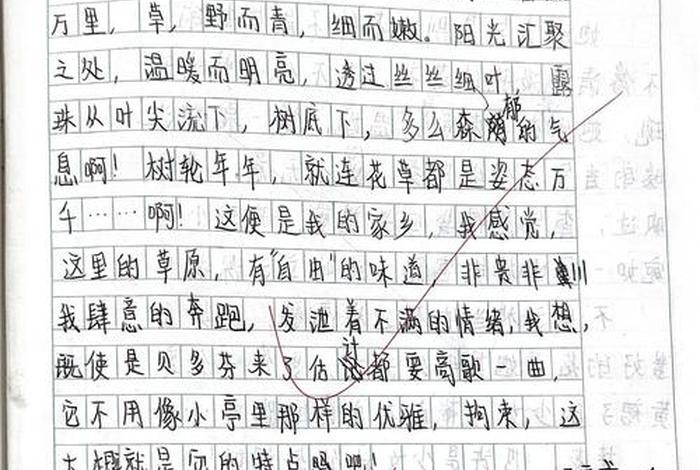 万里，草，野而青，细而嫩。阳光汇聚
之处，温暖而明亮，透过丝丝细叶，露
珠从叶尖流下，树底下，多么森郁的气
息啊！树轮年年，就连花草都是姿态万
千……啊！这便是我的家乡，我感觉，
这里的草原，有"自由"的味道，非贵非
我肆意的奔跑，发泄着不满的情绪，我想，
既使是贝多芬来了估计都要高歌一曲，
它不用像小亭里那样的优雅，拘束，这
大概就是它的特点吧！